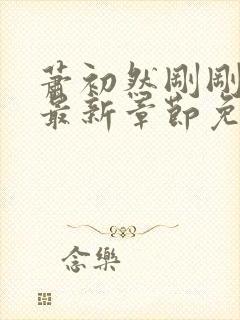 蕭初然剛剛
最新章節免
念樂